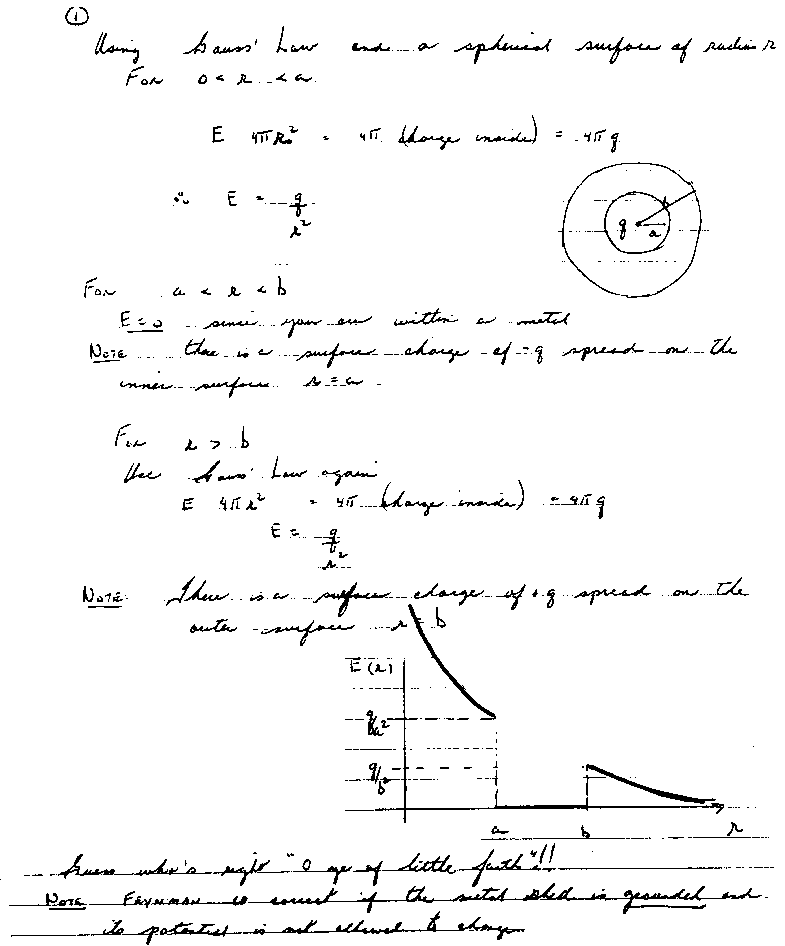 ①
Using Gauss' Law and a spherical surface of radius r
For 0 < r < a
E 4πr² = 4π (charge inside) = 4πq
∴ E = q/r²
b
q
a
For a < r < b
E = 0 since you are within a metal
Note there is a surface charge of -q spread on the
inner surface r = a.
For r > b
Use Gauss' Law again
E 4πr² = 4π (charge inside) = 4πq
E = q/r²
Note There is a surface charge of +q spread on the
outer surface r = b
E(r)
q/a²
q/b²
a b r
Guess who's right "O ye of little faith"!!
Note Feynman is correct if the metal shell is grounded and
its potential is not allowed to change